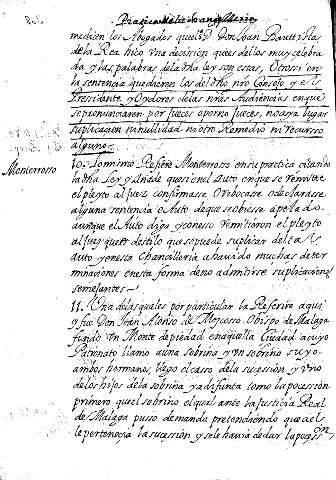 Practica de la changilleria
medicen los Abogados que el Sr. Don Joan Bautista
de la Rea hiço una decission que es de los muy celebra
da y las palabras de la dha ley son estas, Otrossi en
la sentencia que dieren los del dho nro Consejo y el
Presidente y Oydores de las nras Audiencias en que
se pronunciaren por Jueces o por no Jueces, no aya lugar
suplicacion ni nulidad ni otro Remedio ni recurso
alguno
Monterrosso
10. Lo mismo Refiere Monterrosso en su practica citando
la dha Ley y Añade que si en el Auto en que se remitiere
el pleyto al Juez confirmasse o Rebocasse o declarasse
alguna sentencia o Auto de que se obiesse apelado
aunque el Auto diga y conesso remitieron el pleyto
al Juez que es destilo que se puede suplicar del tal
auto y en esta Chancilleria a havido muchas deter
minaciones en esta forma de no admitirse suplicaciones
semejantes
11. Una de las quales por particular la Referire aqui
y fue Don Joan Alonso de Moscosso Obispo de Malaga
fundo un Monte de piedad en aquella Ciudad a cuyo
Patronato llamo a una sobrina y un sobrino suyo
ambos hermanos, llego el caso de la sucession, y uno
de los hijos de la sobrina ya difunta tomo la possession
primero que el sobrino el qual ante la Justicia Real
de Malaga pusso demanda pretendiendo que a el
le pertenecia la sucession y se le havia de dar la possesn